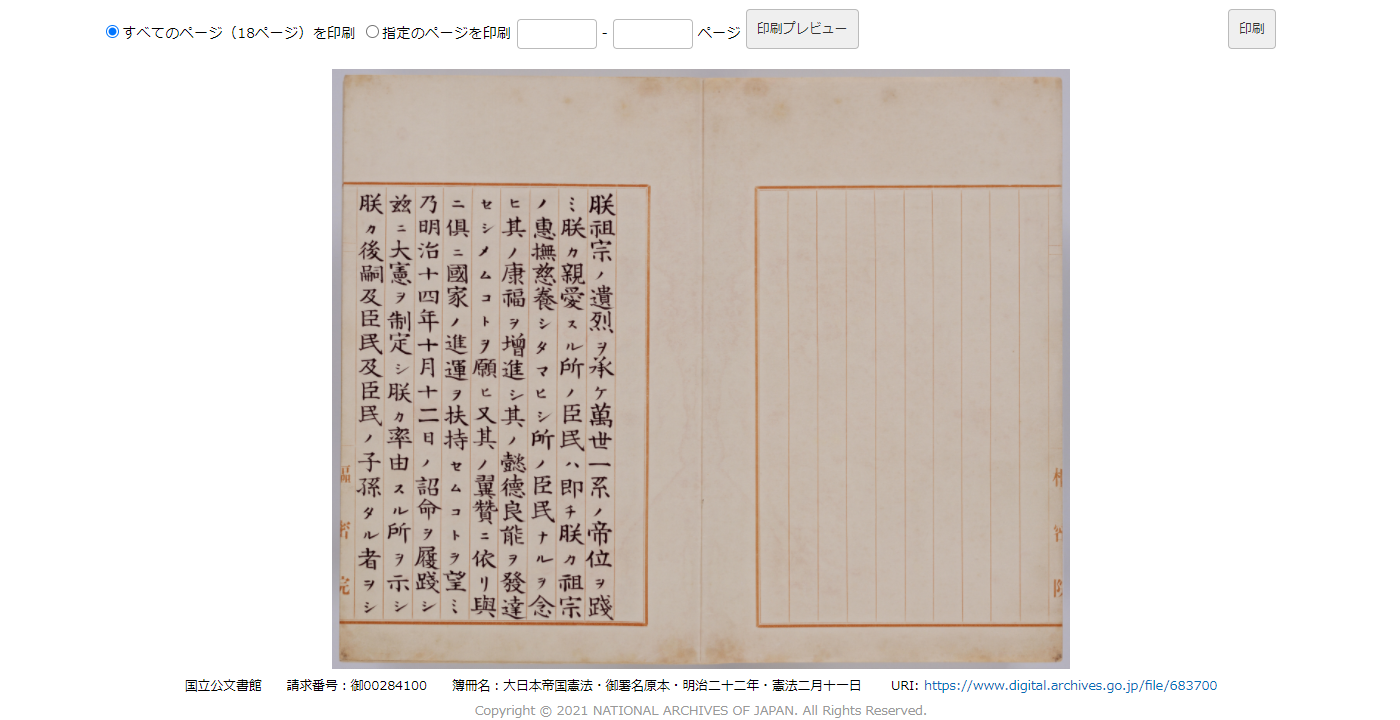 すべてのページ（18ページ）を印刷 指定のページを印刷 - ページ 印刷プレビュー 印刷
朕祖宗ノ遺烈ヲ承ケ萬世一系ノ帝位ヲ踐
ミ朕カ親愛スル所ノ臣民ハ即チ朕カ祖宗
ノ惠撫慈養シタマヒシ所ノ臣民ナルヲ念
ヒ其ノ康福ヲ增進シ其ノ懿德良能ヲ發達
セシメムコトヲ願ヒ又其ノ翼贊ニ依リ與
ニ俱ニ國家ノ進運ヲ扶持セムコトヲ望ミ
乃明治十四年十月十二日ノ詔命ヲ履踐シ
玆ニ大憲ヲ制定シ朕カ率由スル所ヲ示シ
朕カ後嗣及臣民及臣民ノ子孫タル者ヲシ
国立公文書館 請求番号：御00284100 簿冊名：大日本帝国憲法・御署名原本・明治二十二年・憲法二月十一日 URI: https://www.digital.archives.go.jp/file/683700
Copyright © 2021 NATIONAL ARCHIVES OF JAPAN. All Rights Reserved.